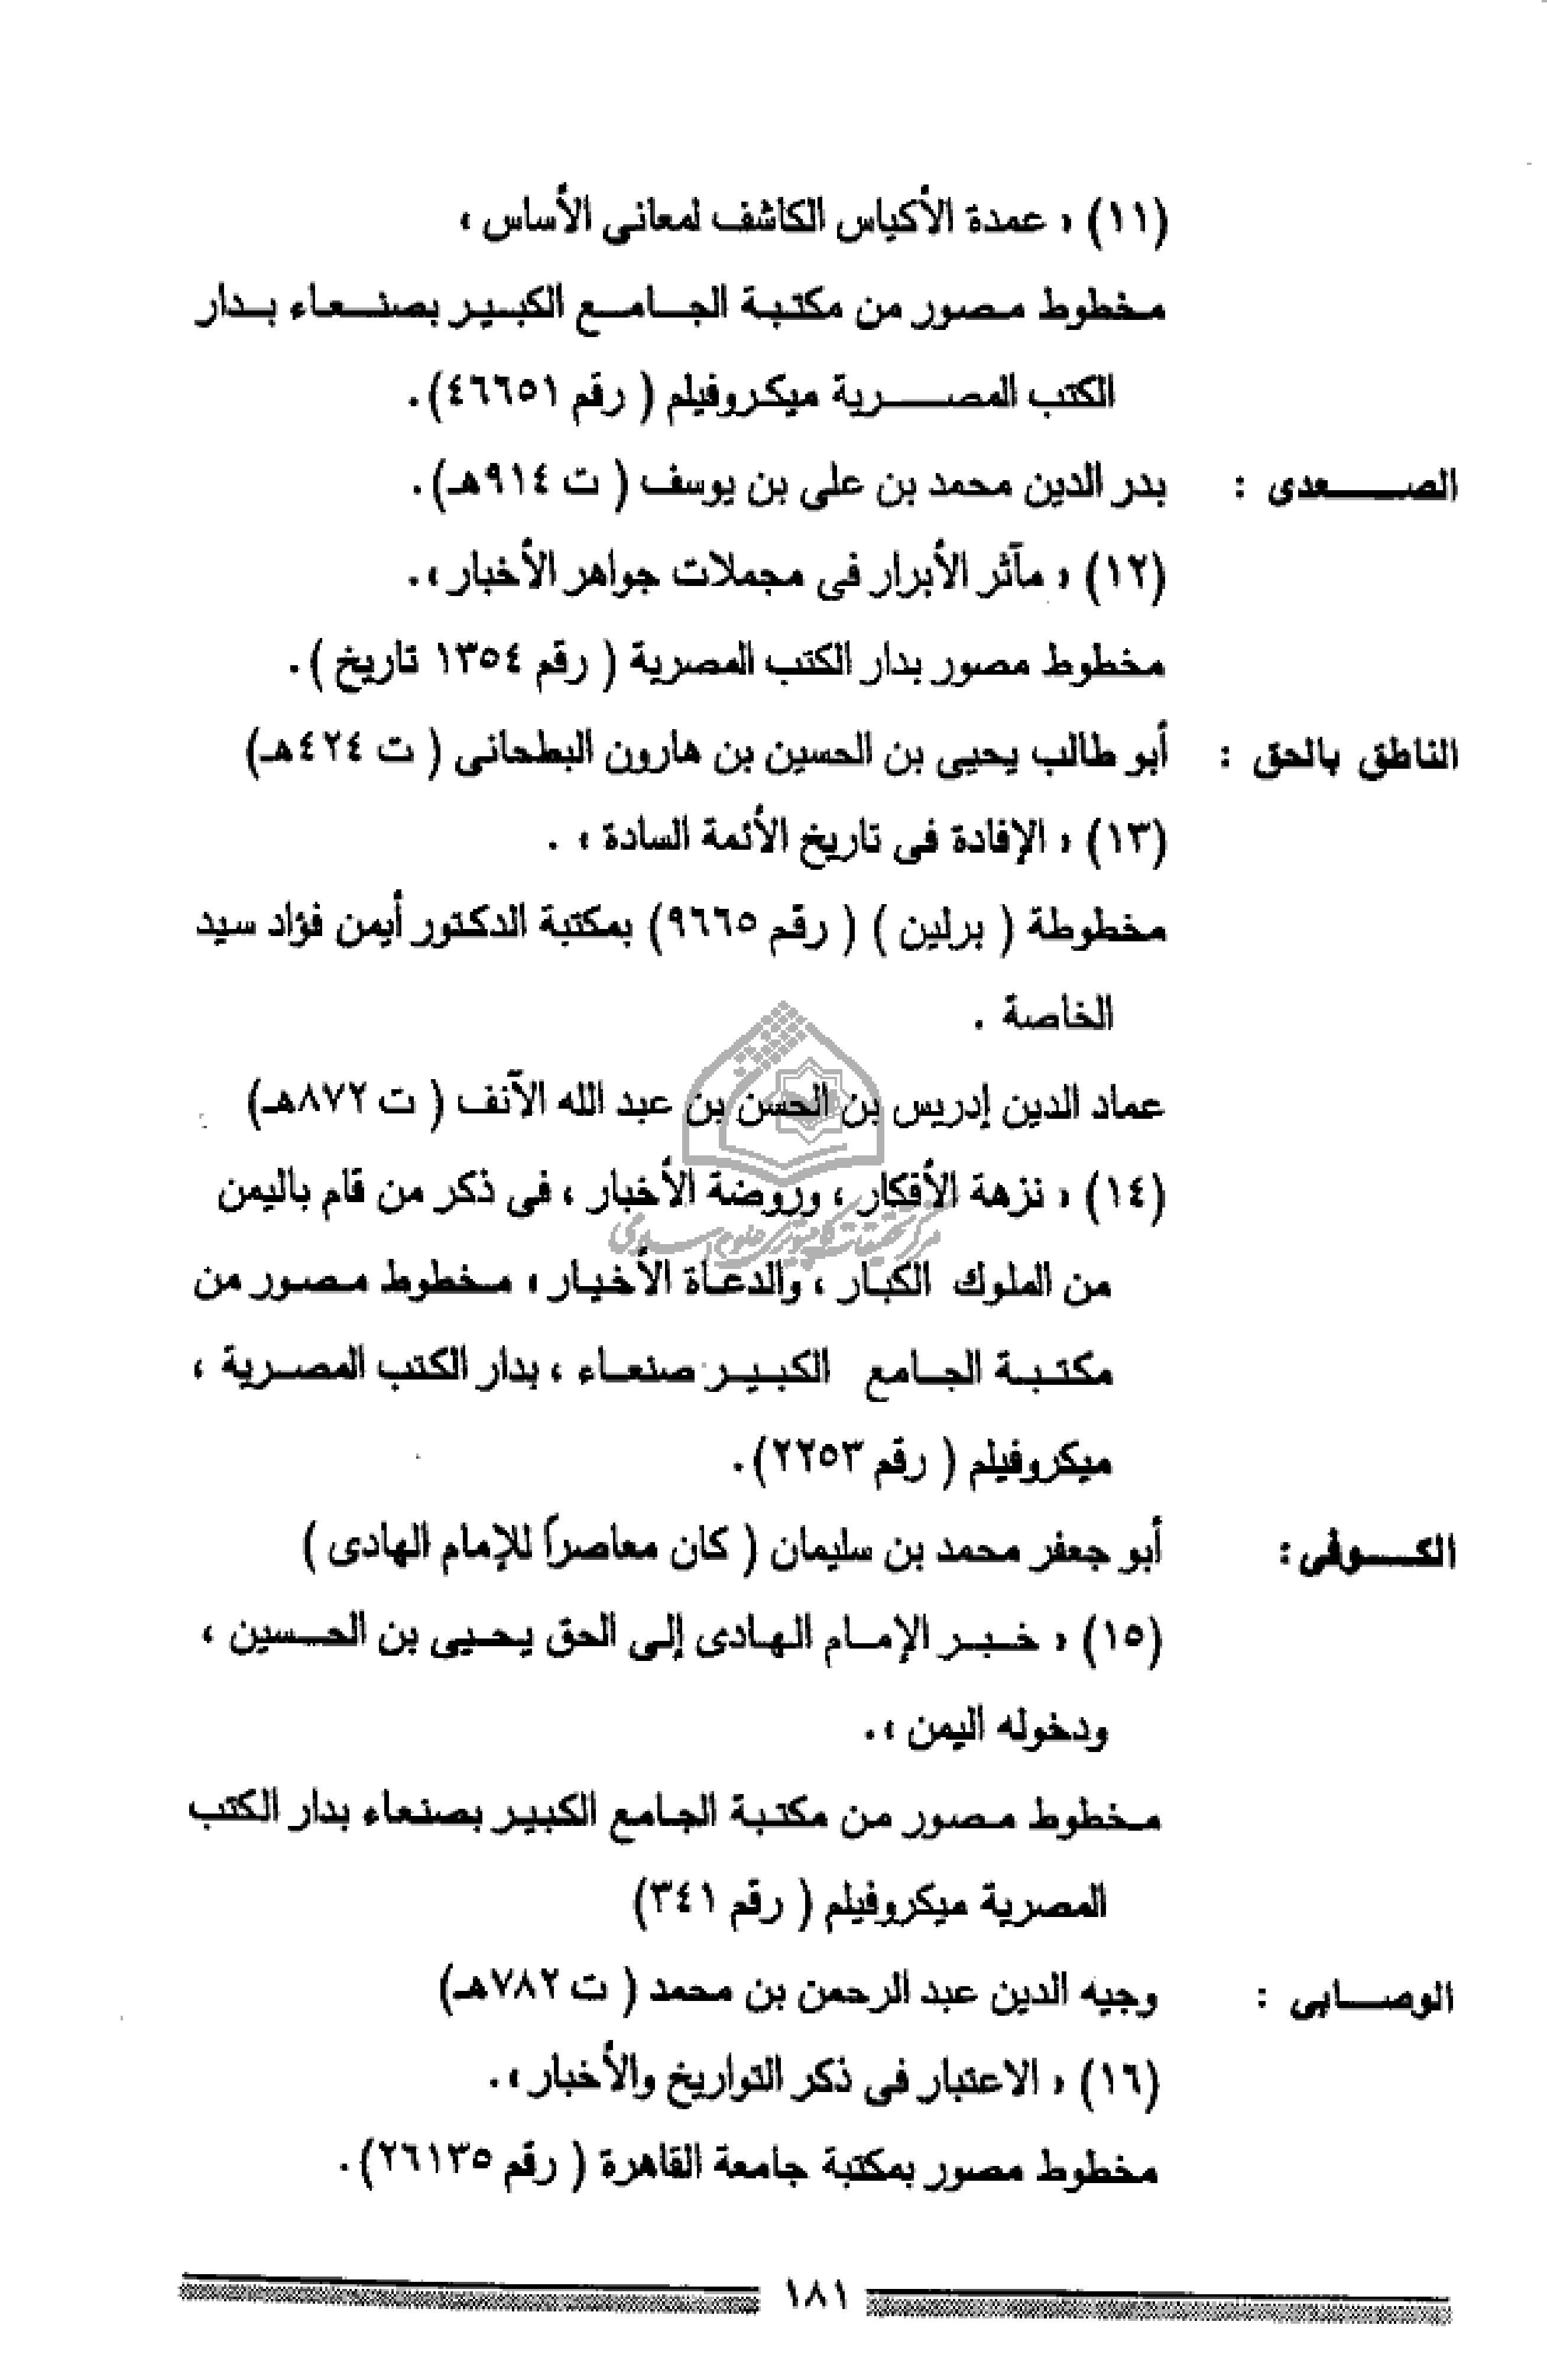 (١١) « عمدة الأكياس الكاشف لمعانى الأساس »
مخطوط مصور من مكتبة الجامع الكبير بصنعاء بدار
الكتب المصرية ميكروفيلم ( رقم ٤٦٦٥١).
الصعدى : بدر الدين محمد بن على بن يوسف ( ت ٩١٤هـ).
(١٢) « مآثر الأبرار فى مجملات جواهر الأخبار ».
مخطوط مصور بدار الكتب المصرية ( رقم ١٣٥٤ تاريخ ).
الناطق بالحق : أبو طالب يحيى بن الحسين بن هارون البطحانى ( ت ٤٢٤هـ)
(١٣) « الإفادة فى تاريخ الأئمة السادة » .
مخطوطة ( برلين ) ( رقم ٩٦٦٥) بمكتبة الدكتور أيمن فؤاد سيد
الخاصة .
عماد الدين إدريس بن الحسن بن عبد الله الآنف ( ت ٨٧٢هـ)
(١٤) « نزهة الأفكار ، وروضة الأخبار ، فى ذكر من قام باليمن
من الملوك الكبار ، والدعاة الأخيار » مخطوط مصور من
مكتبة الجامع الكبير صنعاء ، بدار الكتب المصرية ،
ميكروفيلم ( رقم ٢٢٥٣).
الكوفى : أبو جعفر محمد بن سليمان ( كان معاصراً للإمام الهادى )
(١٥) « خبر الإمام الهادى إلى الحق يحيى بن الحسين ،
ودخوله اليمن ».
مخطوط مصور من مكتبة الجامع الكبير بصنعاء بدار الكتب
المصرية ميكروفيلم ( رقم ٣٤١)
الوصابى : وجيه الدين عبد الرحمن بن محمد ( ت ٧٨٢هـ)
(١٦) « الاعتبار فى ذكر التواريخ والأخبار ».
مخطوط مصور بمكتبة جامعة القاهرة ( رقم ٢٦١٣٥).
١٨١
مرکز تحقیقات کامپیوتری علوم اسلامی